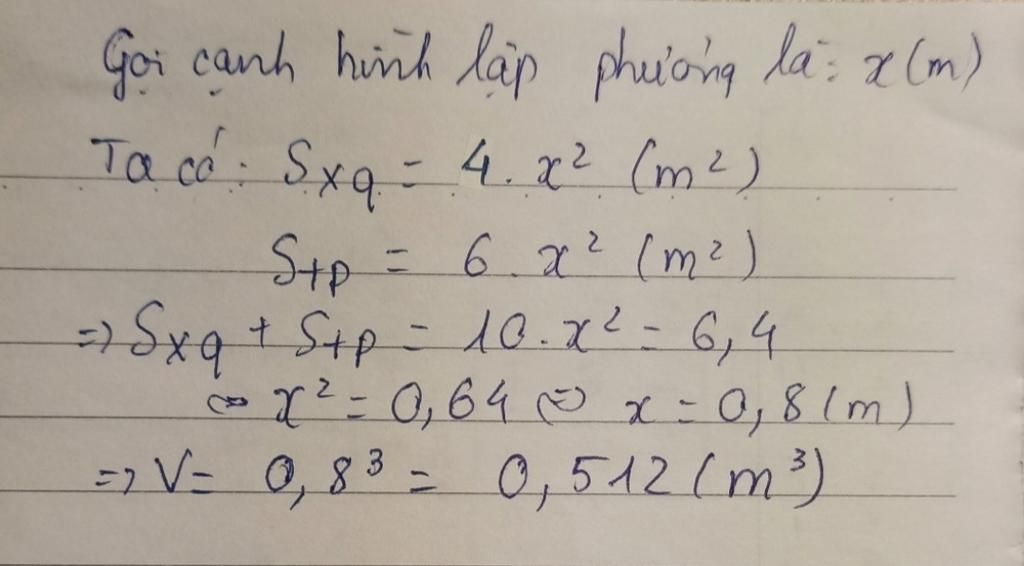 Gọi cạnh hình lập phương là: x(m)
Ta có: Sxq = 4. x² (m²)
Stp = 6. x² (m²)
=> Sxq + Stp = 10. x² = 6,4
<=> x² = 0,64 <=> x = 0,8 (m)
=> V = 0,8³ = 0,512 (m³)